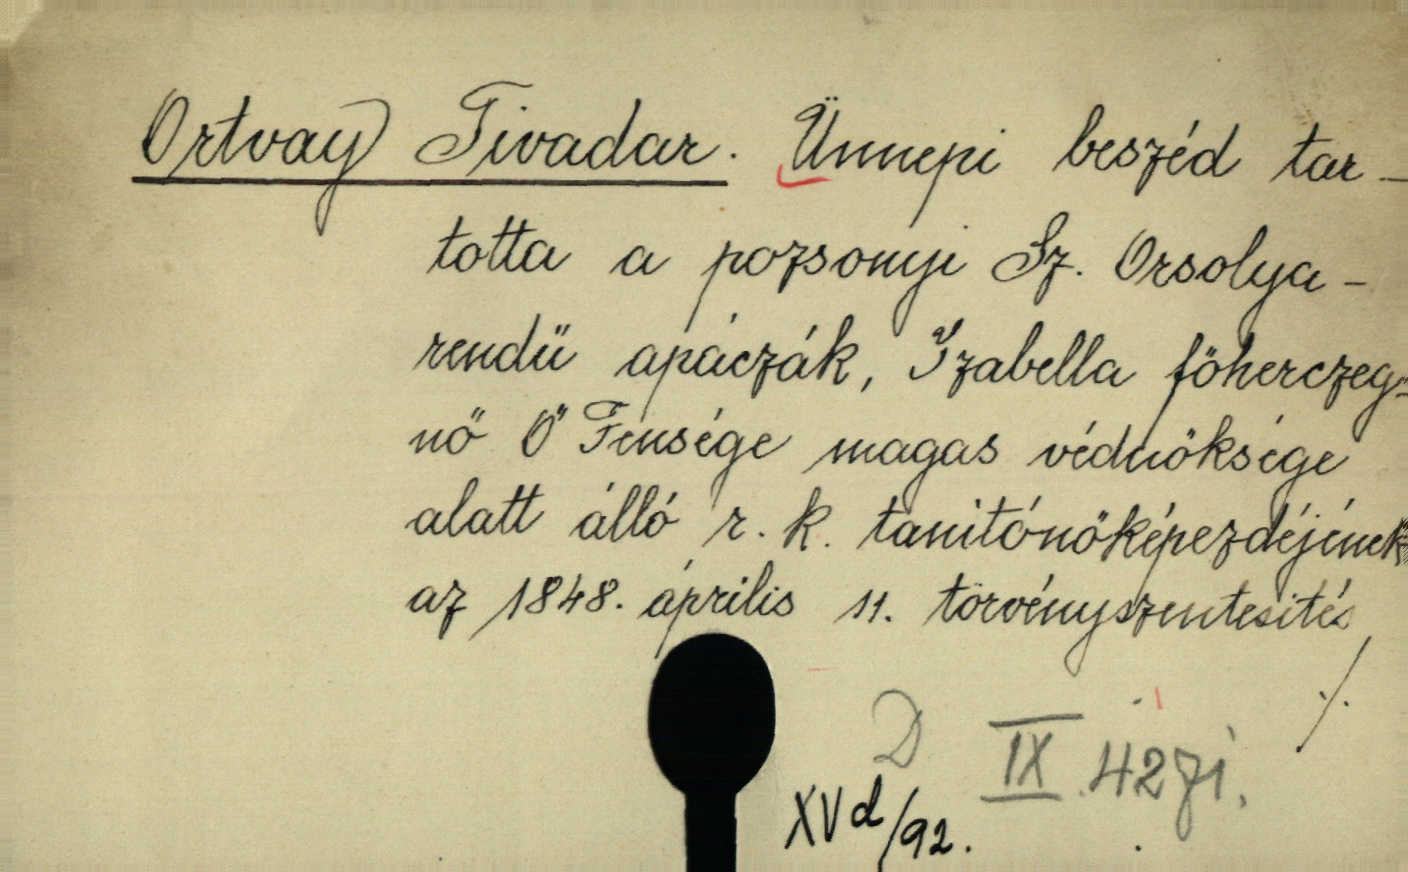 Ortvay Tivadar. Ünnepi beszéd tar-
totta a pozsonyi Sz. Orsolya-
rendü apáczák, Izabella főherczeg-
nő Ő Fensége magas védnöksége
alatt álló r. k. tanitónőképezdéjének
az 1848. április 11. törvényszentesités
./.
D IX. 427i.
XVd/92.